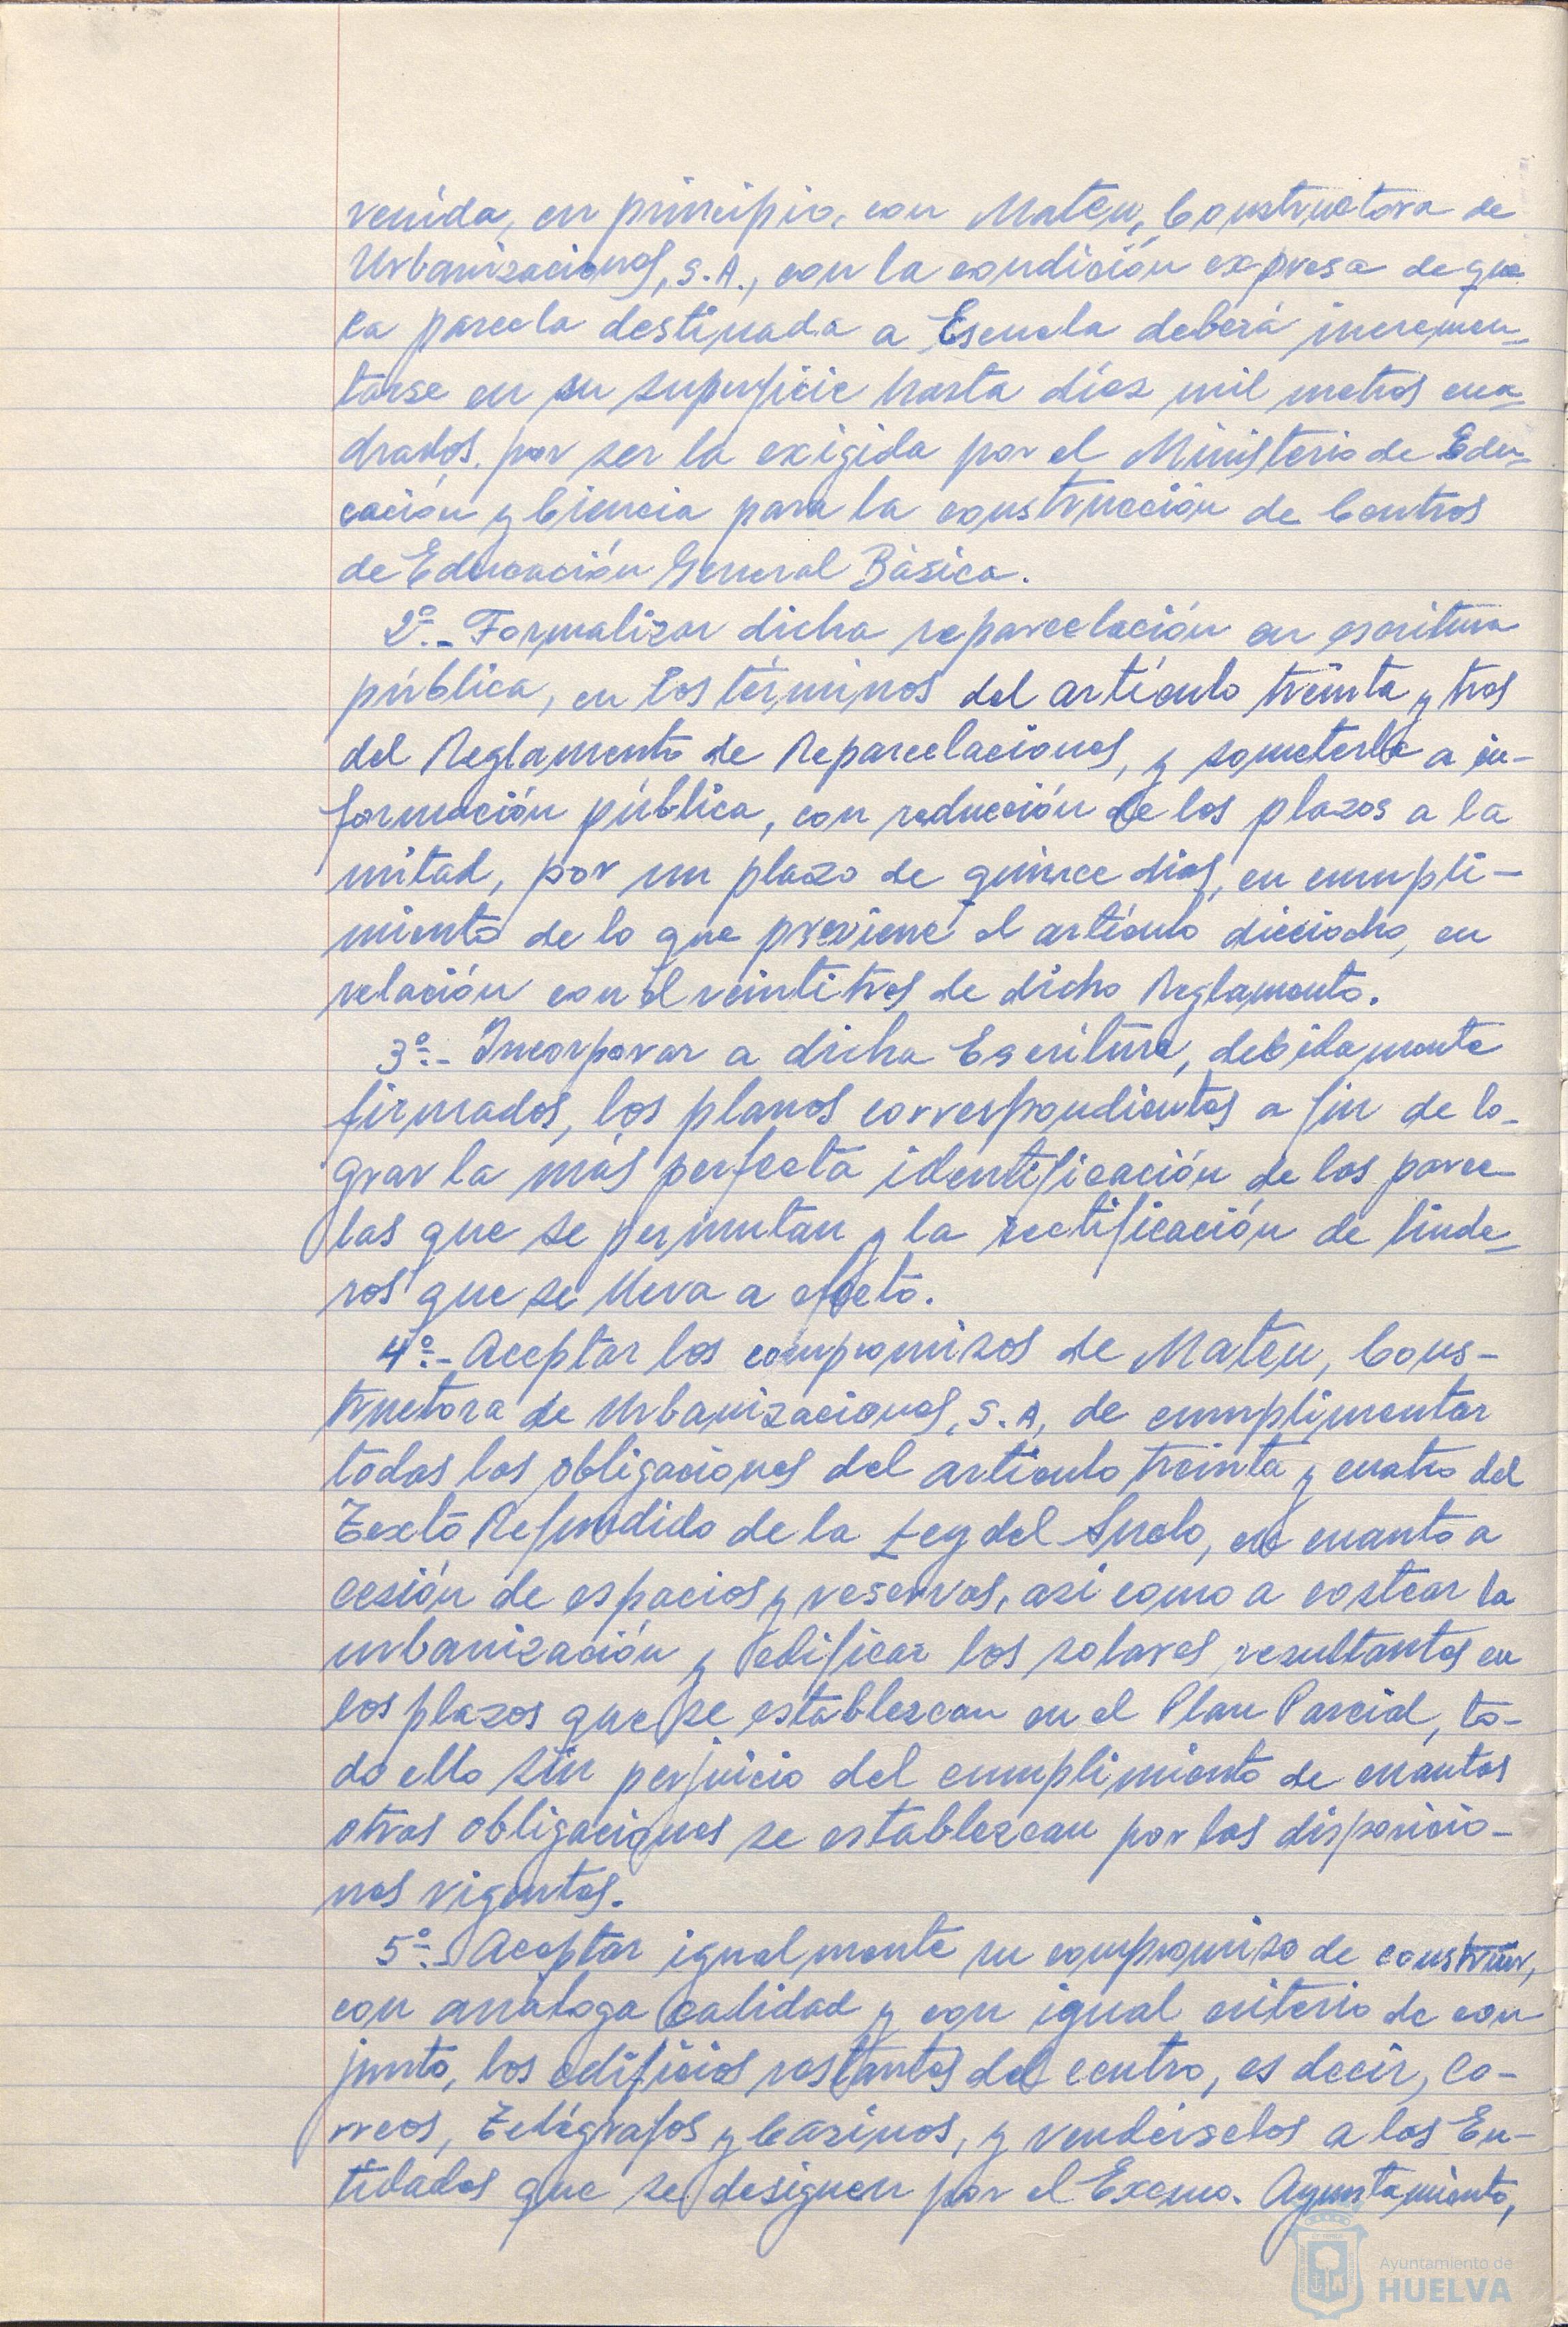 venida, en principio, con Mateu, Constructora de
Urbanizaciones, S.A., con la condición expresa de que
la parcela destinada a Escuela deberá incremen-
tarse en su superficie hasta diez mil metros cua-
drados, por ser la exigida por el Ministerio de Edu-
cación y Ciencia para la construcción de Centros
de Educación General Básica.
2º.- Formalizar dicha reparcelación en escritura
pública, en los términos del artículo treinta y tres
del Reglamento de Reparcelaciones, y someterla a in-
formación pública, con reducción de los plazos a la
mitad, por un plazo de quince dias, en cumpli-
miento de lo que previene el artículo dieciocho, en
relación con el veintitres de dicho Reglamento.
3º.- Incorporar a dicha Escritura, debidamente
firmados, los planos correspondientes a fin de lo-
grar la más perfecta identificación de las parce-
las que se permutan y la rectificación de linde-
ros que se lleva a efecto.
4º.- Aceptar los compromisos de Mateu, Cons-
tructora de Urbanizaciones, S.A, de cumplimentar
todas las obligaciones del artículo treinta y cuatro del
Texto Refundido de la Ley del Suelo, en cuanto a
cesión de espacios y reservas, asi como a costear la
urbanización y edificar los solares resultantes en
los plazos que se establezcan en el Plan Parcial, to-
do ello sin perjuicio del cumplimiento de cuantas
otras obligaciones se establezcan por las disposicio-
nes vigentes.
5º.- Aceptar igualmente su compromiso de construir,
con análoga calidad y con igual criterio de con
junto, los edificios restantes del centro, es decir, Co-
rreos, Telégrafos y Casinos, y vendérselos a las En-
tidades que se designen por el Excmo. Ayuntamiento,
Ayuntamiento de
HUELVA